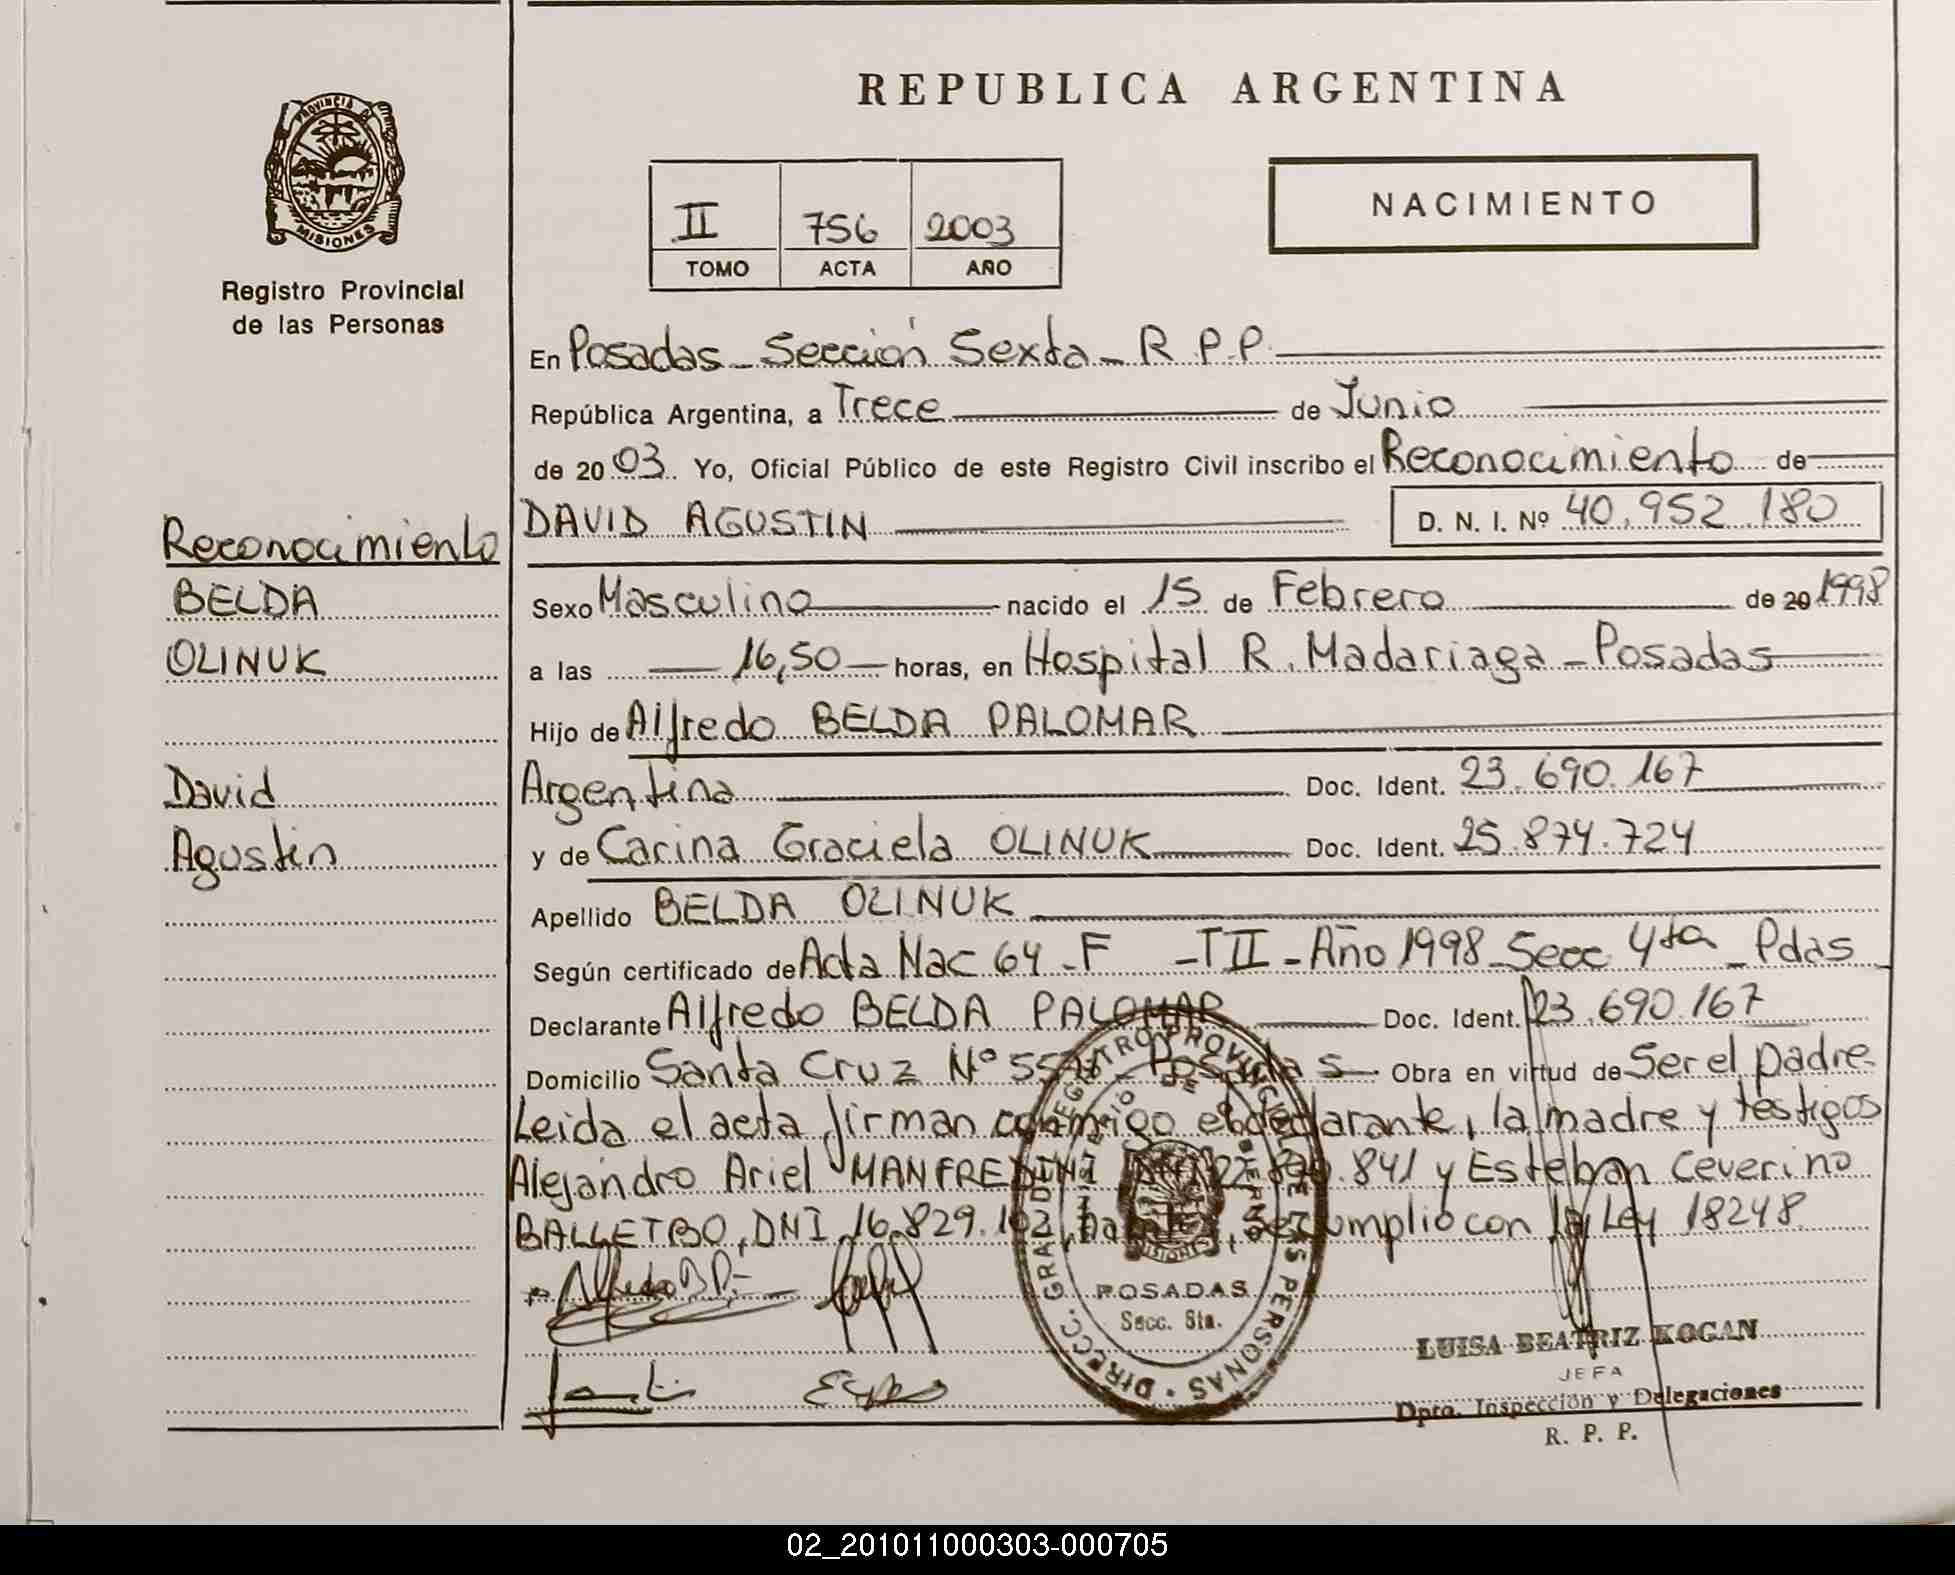 PROVINCIA DE
MISIONES
Registro Provincial
de las Personas
Reconocimiento
BELDA
OLINUK
David
Agustin
REPUBLICA ARGENTINA
NACIMIENTO
II 756 2003
TOMO ACTA AÑO
En Posadas - Sección Sexta - R.P.P.
República Argentina, a Trece de Junio
de 2003. Yo, Oficial Público de este Registro Civil inscribo el Reconocimiento de
DAVID AGUSTIN D. N. I. Nº 40.952.180
Sexo Masculino nacido el 15 de Febrero de 20 1998
a las 16,50 horas, en Hospital R. Madariaga - Posadas
Hijo de Alfredo BELDA PALOMAR
Argentina Doc. Ident. 23.690.167
y de Carina Graciela OLINUK Doc. Ident. 25.874.724
Apellido BELDA OLINUK
Según certificado de Acta Nac 64 - F - TII - Año 1998 - Secc 4ta - Pdas
Declarante Alfredo BELDA PALOMAR Doc. Ident. 23.690.167
Domicilio Santa Cruz Nº Posadas Obra en virtud de Ser el padre
Leida el acta firman conmigo el declarante, la madre y testigos
Alejandro Ariel MANFREDINI .841 y Esteban Ceverino
BALLETBO, DNI 16.829. , se cumplio con la Ley 18248.
Alfredo B P.
DIRECC. GRAL. DE REGISTRO PROVINCIAL DE LAS PERSONAS
MISIONES
POSADAS
Secc. 6ta.
LUISA BEATRIZ KOGAN
JEFA
Dpto. Inspección y Delegaciones
R. P. P.
02_201011000303-000705